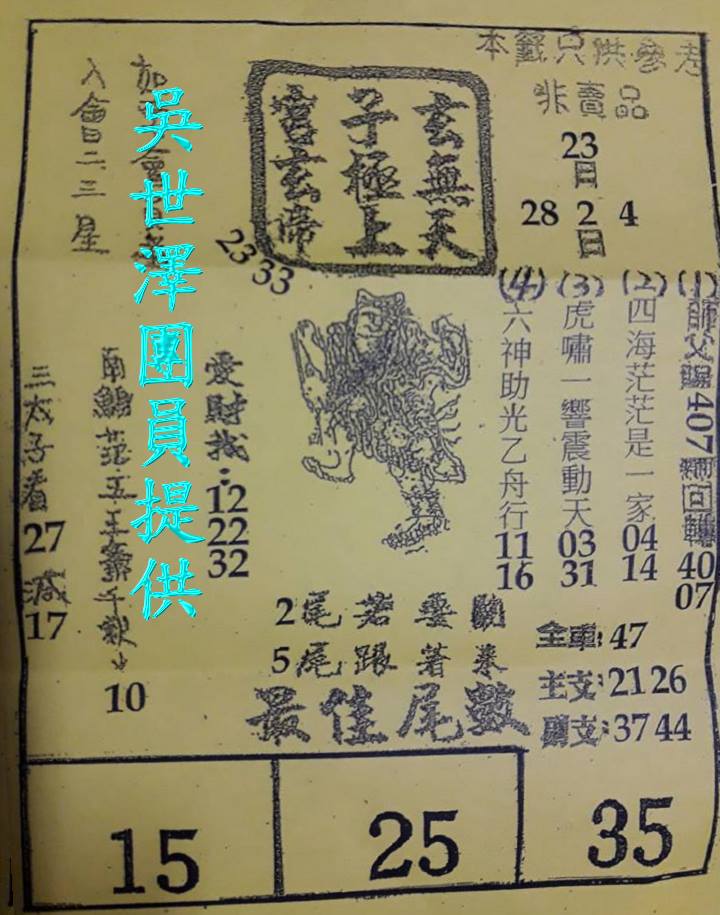 本籤只供參考
非賣品
23
日
28 2 4
日
玄無天
子極上
宮玄帝
23 33
入會二三星
吳世澤團員提供
(1) 師父賜 407 回轉
40
07
(2) 四海茫茫是一家
04
14
(3) 虎嘯一響震動天
03
31
(4) 六神助光乙舟行
11
16
愛財找:
12
22
32
南鯤
五王
10
三太子看
27
減
17
2尾若要
5尾跟著來
最佳尾數
全車: 47
主支: 21 26
副支: 37 44
15
25
35